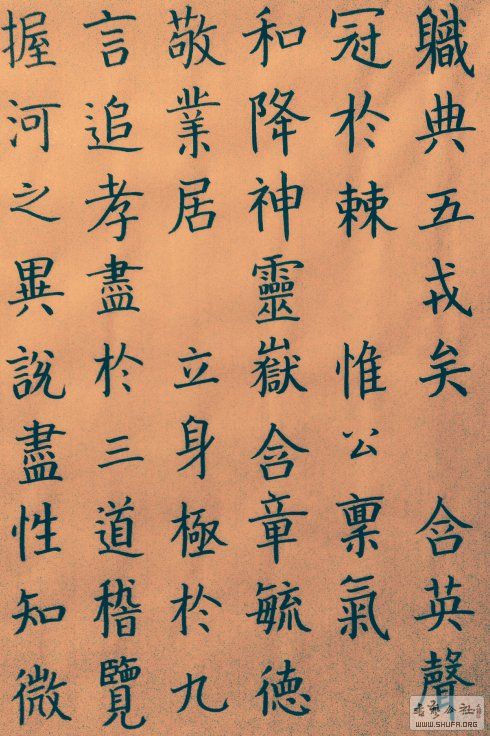 軄典五戎矣 含英聲
冠於棘 惟公稟氣
和降神靈嶽含章毓德
敬業居 立身極於九
言追孝盡於三道稽覽
握河之異說盡性知微
WWW.SHUFA.ORG